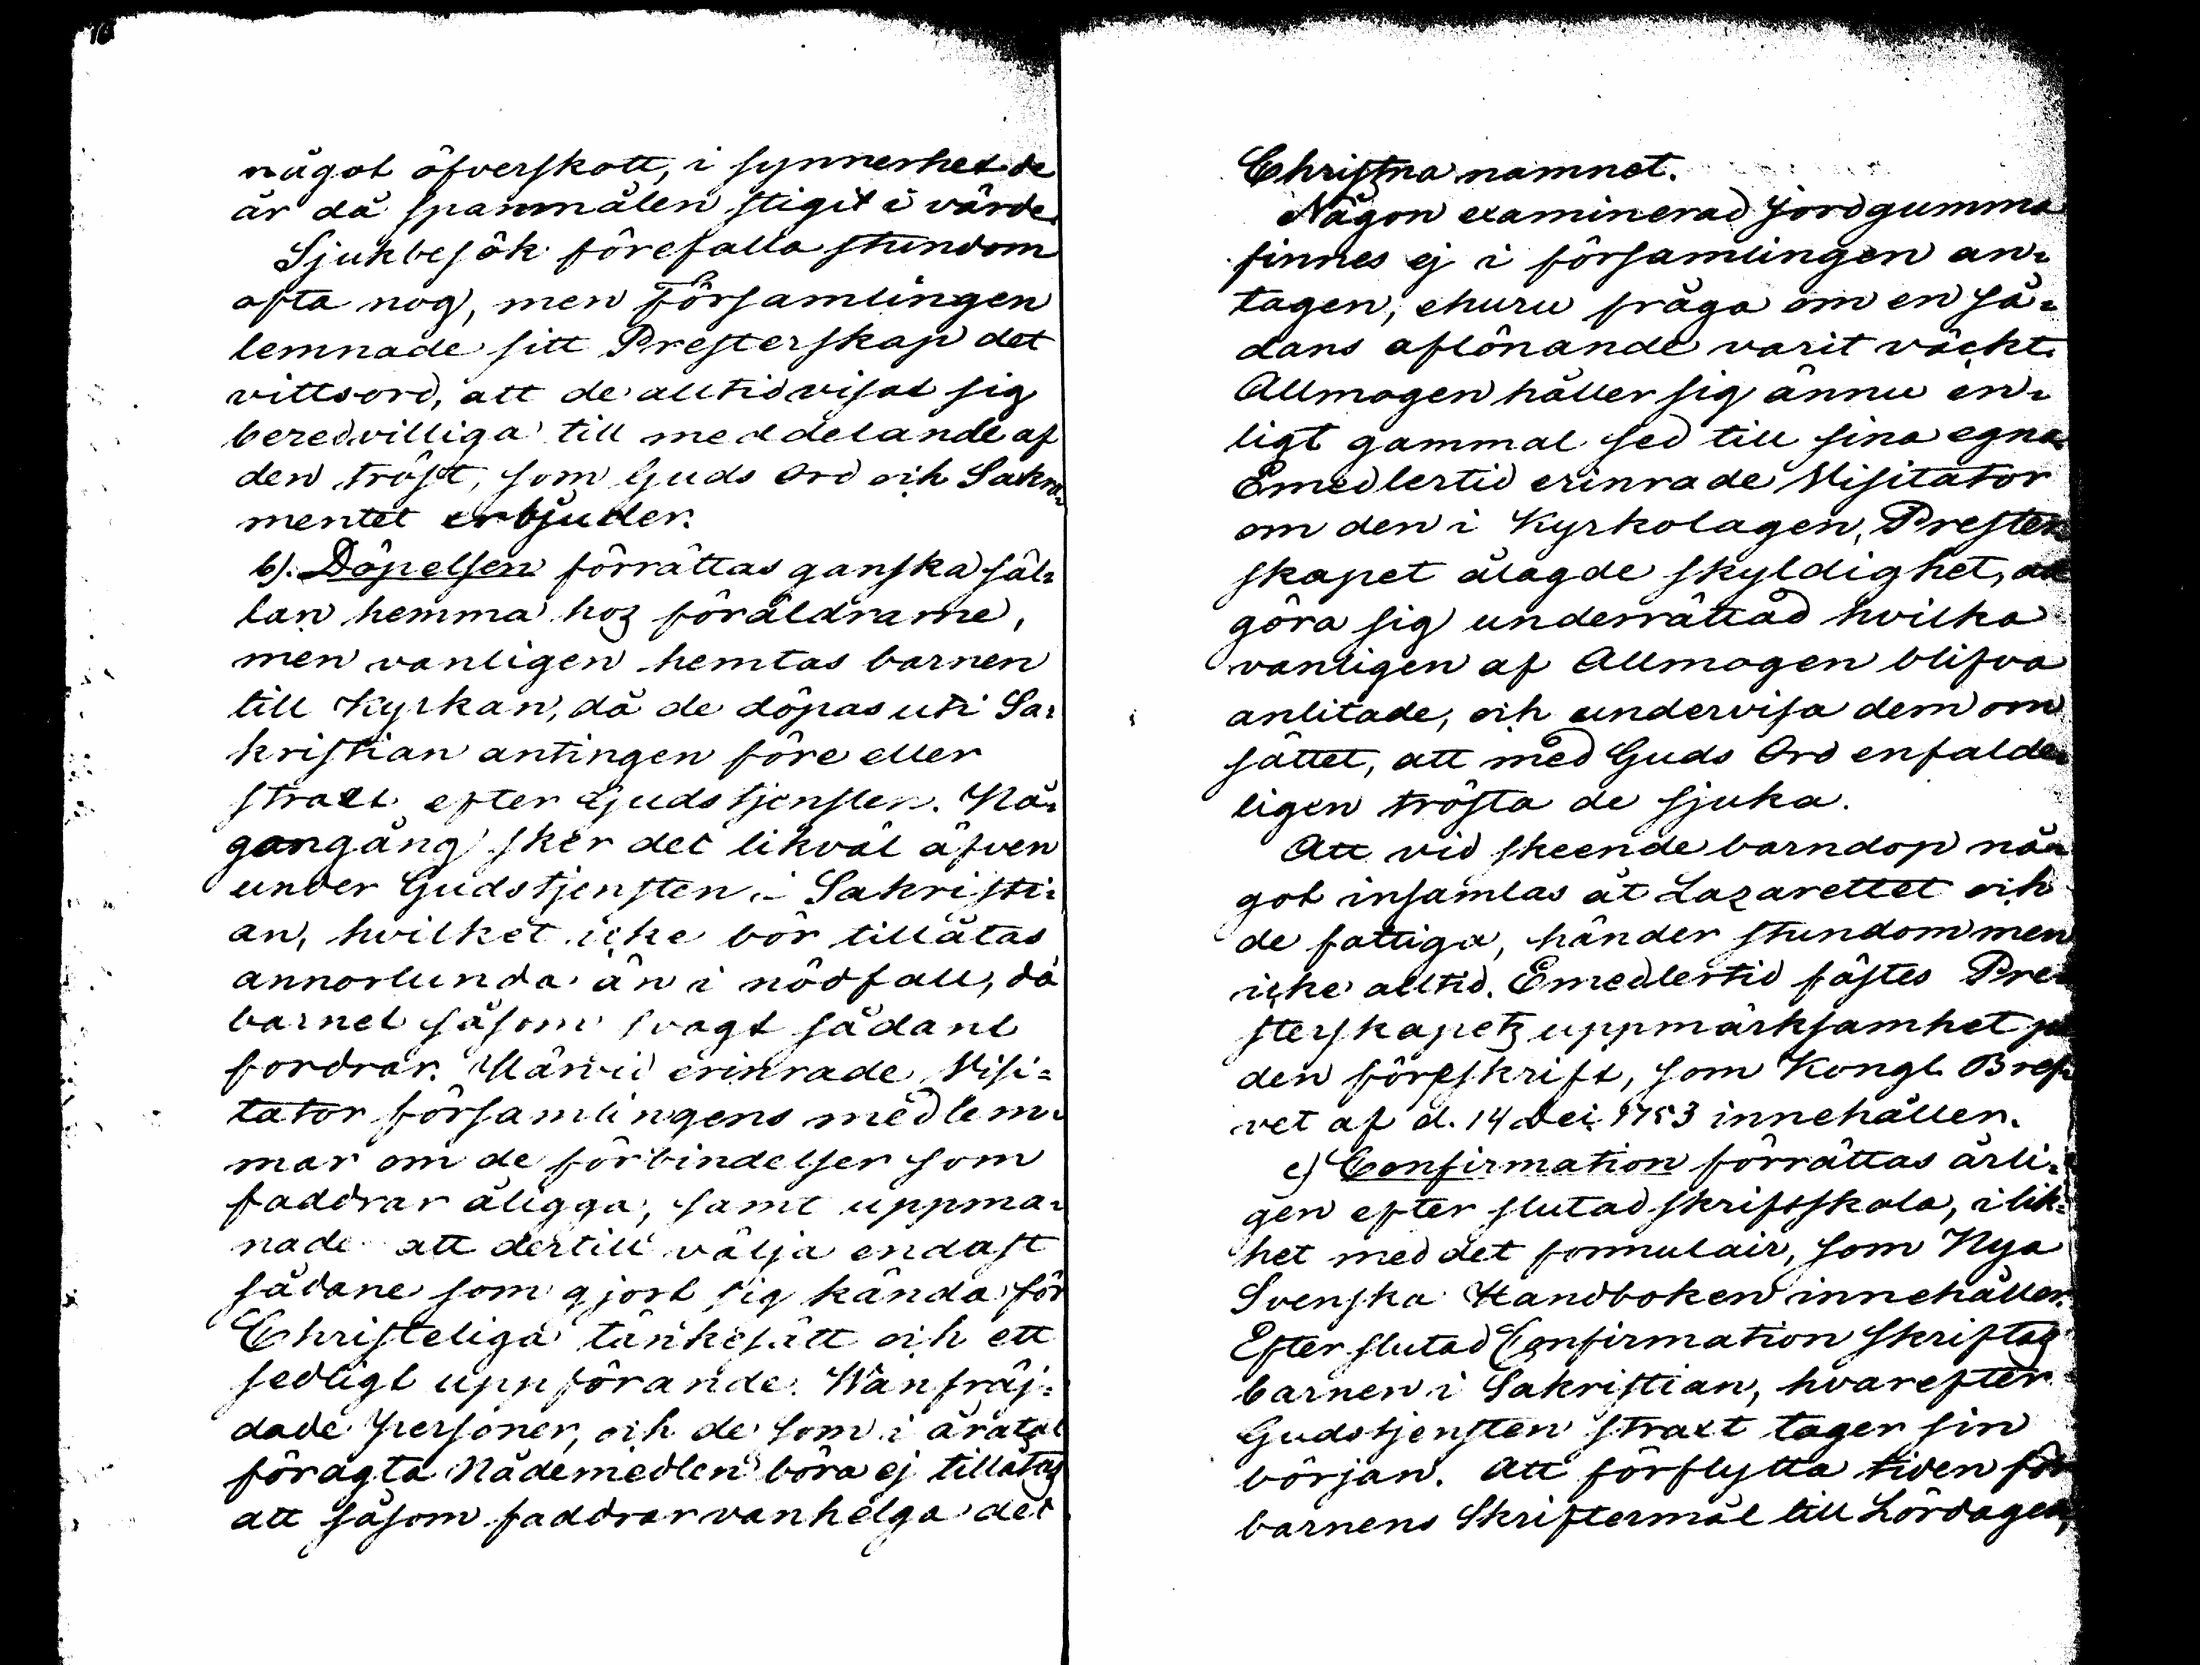 något öfverskott, i synnerhet de
år då spanmålen stigit i värde.
Sjukbesök förefalla stundom
ofta nog, men församlingen
lemnade sitt Presterskap det
vittsord, att de alltid visat sig
beredvilliga till meddelande af
den tröst, som Guds Ord och Sakra-
mentet erbjuder.
b). Döpelsen förrättas ganska säl-
lan hemma hoz föräldrarne,
men vanligen hemtas barnen
till Kyrkan, då de döpas uti Sa-
kristian antingen före eller
straxt efter Gudstjensten. Nå-
gongång sker det likväl äfven
under Gudstjensten i Sakristi-
an, hvilket icke bör tillåtas
annorlunda än i nödfall, då
barnet såsom svagt sådant
fordrar. Härvid erinrade Visi=
tator församlingens medlem-
mar om de förbindelser som
faddrar åligga, samt uppma-
nade att dertill välja endast
sådane som gjort sig kända för
Christeliga tänkesätt och ett
sedligt uppförande. Wanfräj-
dade personer, och de som i åratal
föragta Nådemedlen böra ej tillåtas
att såsom faddrar vanhelga det
Christna namnet.
Någon examinerad Jordgumma
finnes ej i församlingen an-
tagen, ehuru fråga om en så-
dans aflönande varit väckt.
Allmogen håller sig ännu en-
ligt gammal sed till sina egna.
Emedlertid erinrade Visitator
om den i Kyrkolagen, Prester
skapet ålagde skyldighet, att
göra sig underrättad hvilka
vanligen af Allmogen blifva
anlitade, och undervisa dem om
sättet, att med Guds Ord enfalde-
ligen trösta de sjuka.
Att vid skeende barndop nå-
got insamlas åt Lazarettet och
de fattiga, händer stundom men
icke alltid. Emedlertid fästes Pre-
sterskapetz uppmärksamhet på
den föreskrift, som Kongl. Bref-
vet af d. 14 Dec. 1753 innehåller.
c) Confirmation förrättas årli-
gen efter slutad skriftskola, i lik-
het med det formulair, som Nya
Svenska Handboken innehåller.
Efter slutad Confirmation skriftas
barnen i Sakristian, hvarefter
Gudstjensten straxt tager sin
början. Att förflytta tiden för
barnens Skriftermål till Lördagen,